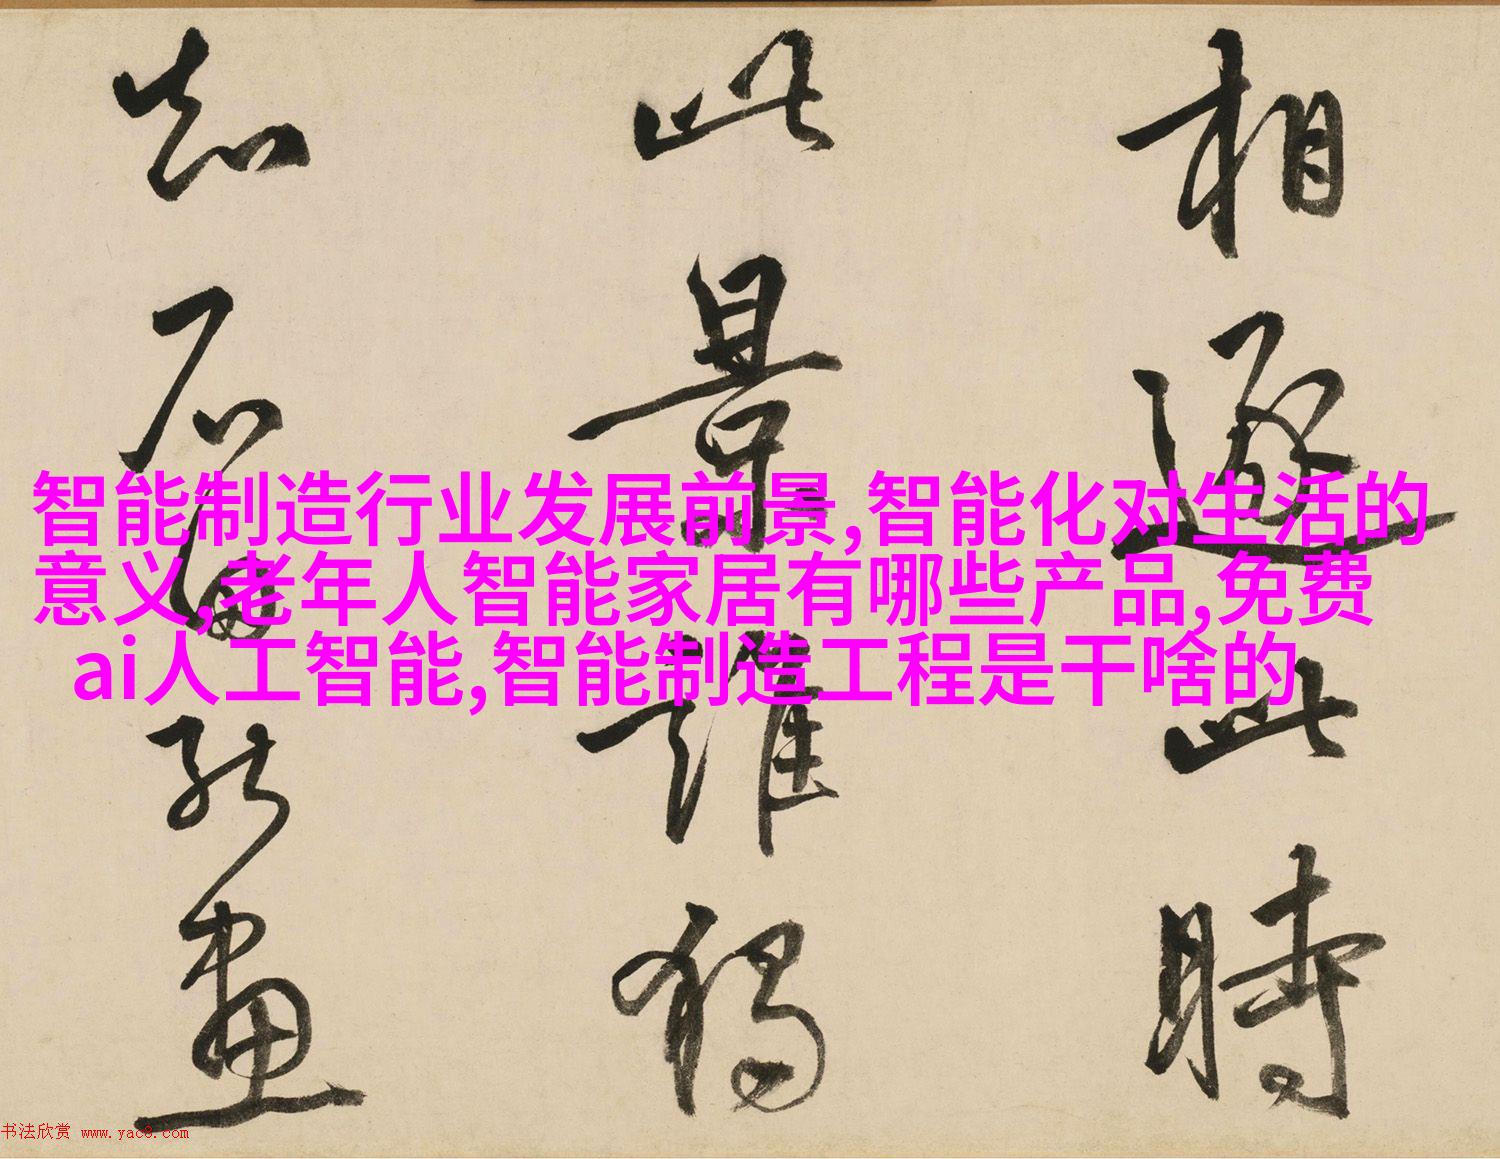 相逐此時
此景誰獨
知石能畫
智能制造行业发展前景,智能化对生活的
意义,老年人智能家居有哪些产品,免费
ai人工智能,智能制造工程是干啥的
书法欣赏 www.yac8.com